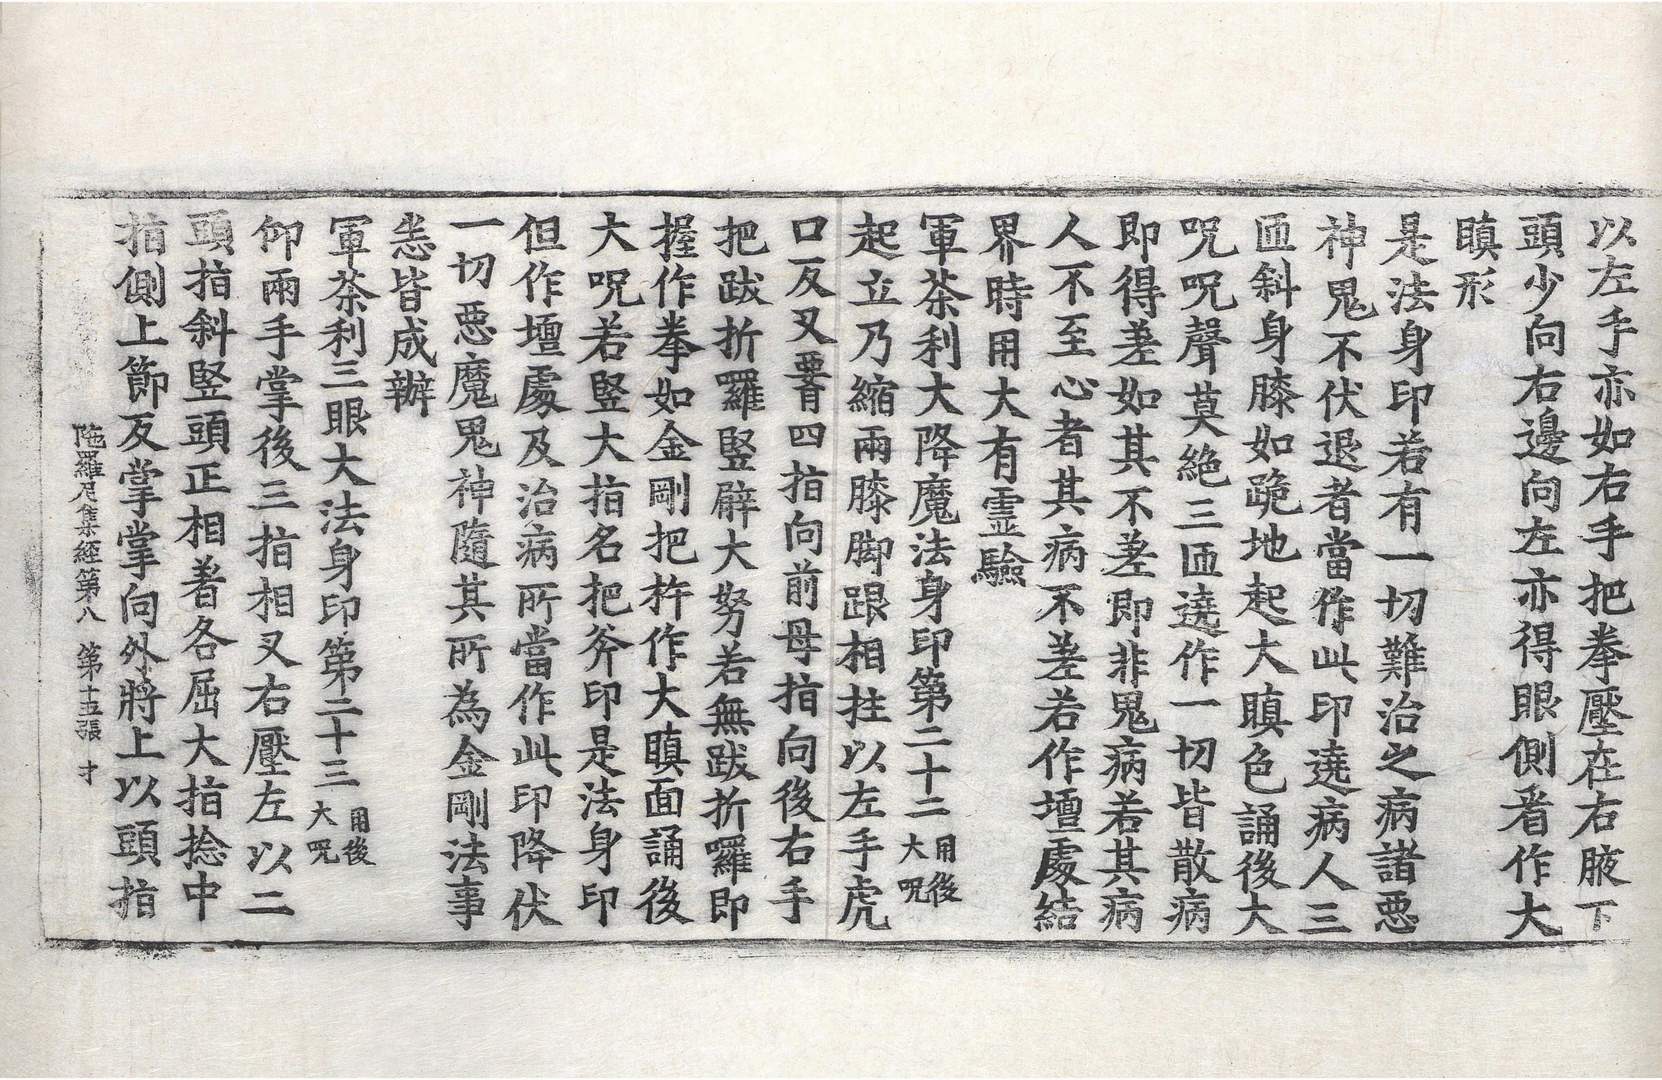 以左手亦如右手把拳壓在右腋下
頭少向右邊向左亦得眼側著作大
瞋形
是法身印若有一切難治之病諸惡
神鬼不伏退者當作此印遶病人三
匝斜身膝如跪地起大瞋色誦後大
呪呪聲莫絶三匝遶作一切皆散病
即得差如其不差即非鬼病若其病
人不至心者其病不差若作壇處結
界時用大有靈驗
軍荼利大降魔法身印第二十二用後大呪
起立乃縮兩膝脚跟相拄以左手虎
口反叉䏚四指向前母指向後右手
把跋折羅竪臂大努若無跋折羅即
握作拳如金剛把杵作大瞋面誦後
大呪若竪大指名把斧印是法身印
但作壇處及治病所當作此印降伏
一切惡魔鬼神隨其所為金剛法事
悉皆成辦
軍荼利三眼大法身印第二十三用後大呪
仰兩手掌後三指相叉右壓左以二
頭指斜竪頭正相著各屈大指捻中
指側上節反掌掌向外將上以頭指
陁羅尼集經第八 第十五張 才